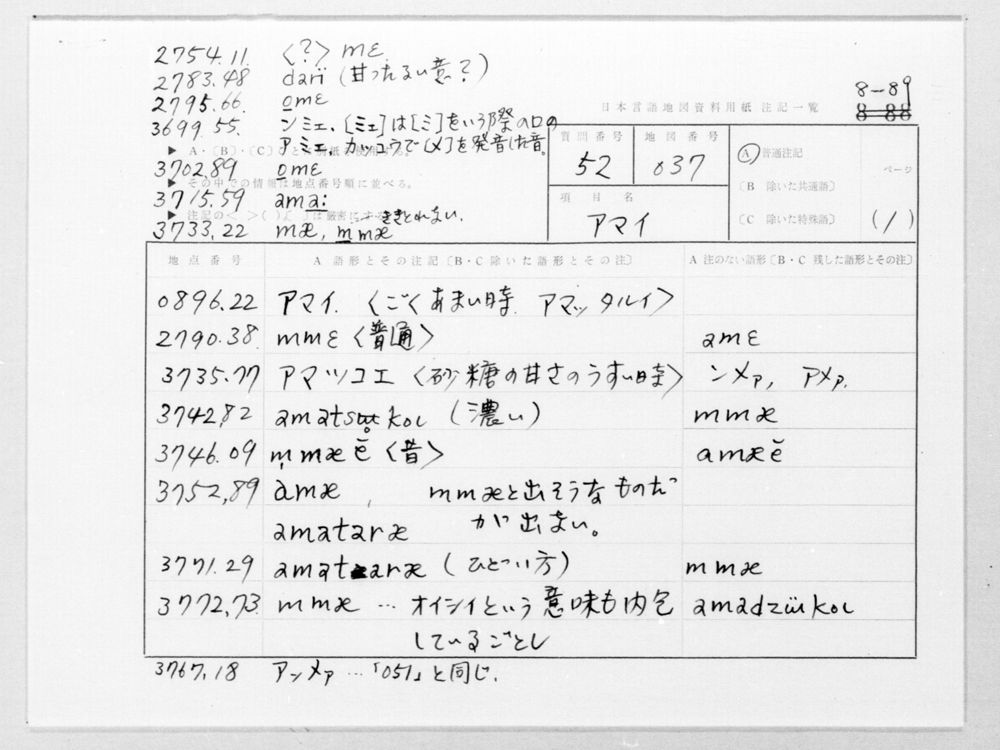 2754.11. 〈?〉 mɛ
2783.48 darï (甘ったるい意?)
2795.66. o̲mɛ
3699.55. ンミェ,[ミェ]は[ミ]をいう際の口の
アミェ, カッコウで[メ]を発音した音。
3702.89 o̲mɛ
3715.59 ama̲:
3733.22 mæ, m̲mæ ききとれない.
日本言語地図資料用紙 注記一覧
8-89
8-88
▶ A・〔B〕・〔C〕ごとに別紙を使用する。
▶ その中での情報は地点番号順に並べる。
▶ 注記の< >( )〔 〕は厳密にする
質問番号 52
地図番号 037
項目名 アマイ
Ⓐ 普通注記
〔B 除いた共通語〕
〔C 除いた特殊語〕
ページ
(1)
地点番号 A 語形とその注記〔B・C除いた語形とその注〕 A 注のない語形〔B・C 残した語形とその注〕
0896.22 アマイ.〈ごくあまい時. アマッタルイ〉
2790.38. mmɛ〈普通〉 amɛ
3735.77 アマツコエ〈砂糖の甘さのうすい時〉 ンメァ, アメァ.
3742.82 amatsɯ̥koɩ (濃い) mmæ
3746.09 m̩mæĕ〈昔〉 amæĕ
3752.89 amæ , mmæと出そうなものだ
amataræ が出ない。
3771.29 amataræ (ひどい方) mmæ
3772.73. mmæ … オイシイという意味も内包 amadzɯ̈koɩ
しているごとし
3767.18 アンメァ …「051」と同じ.